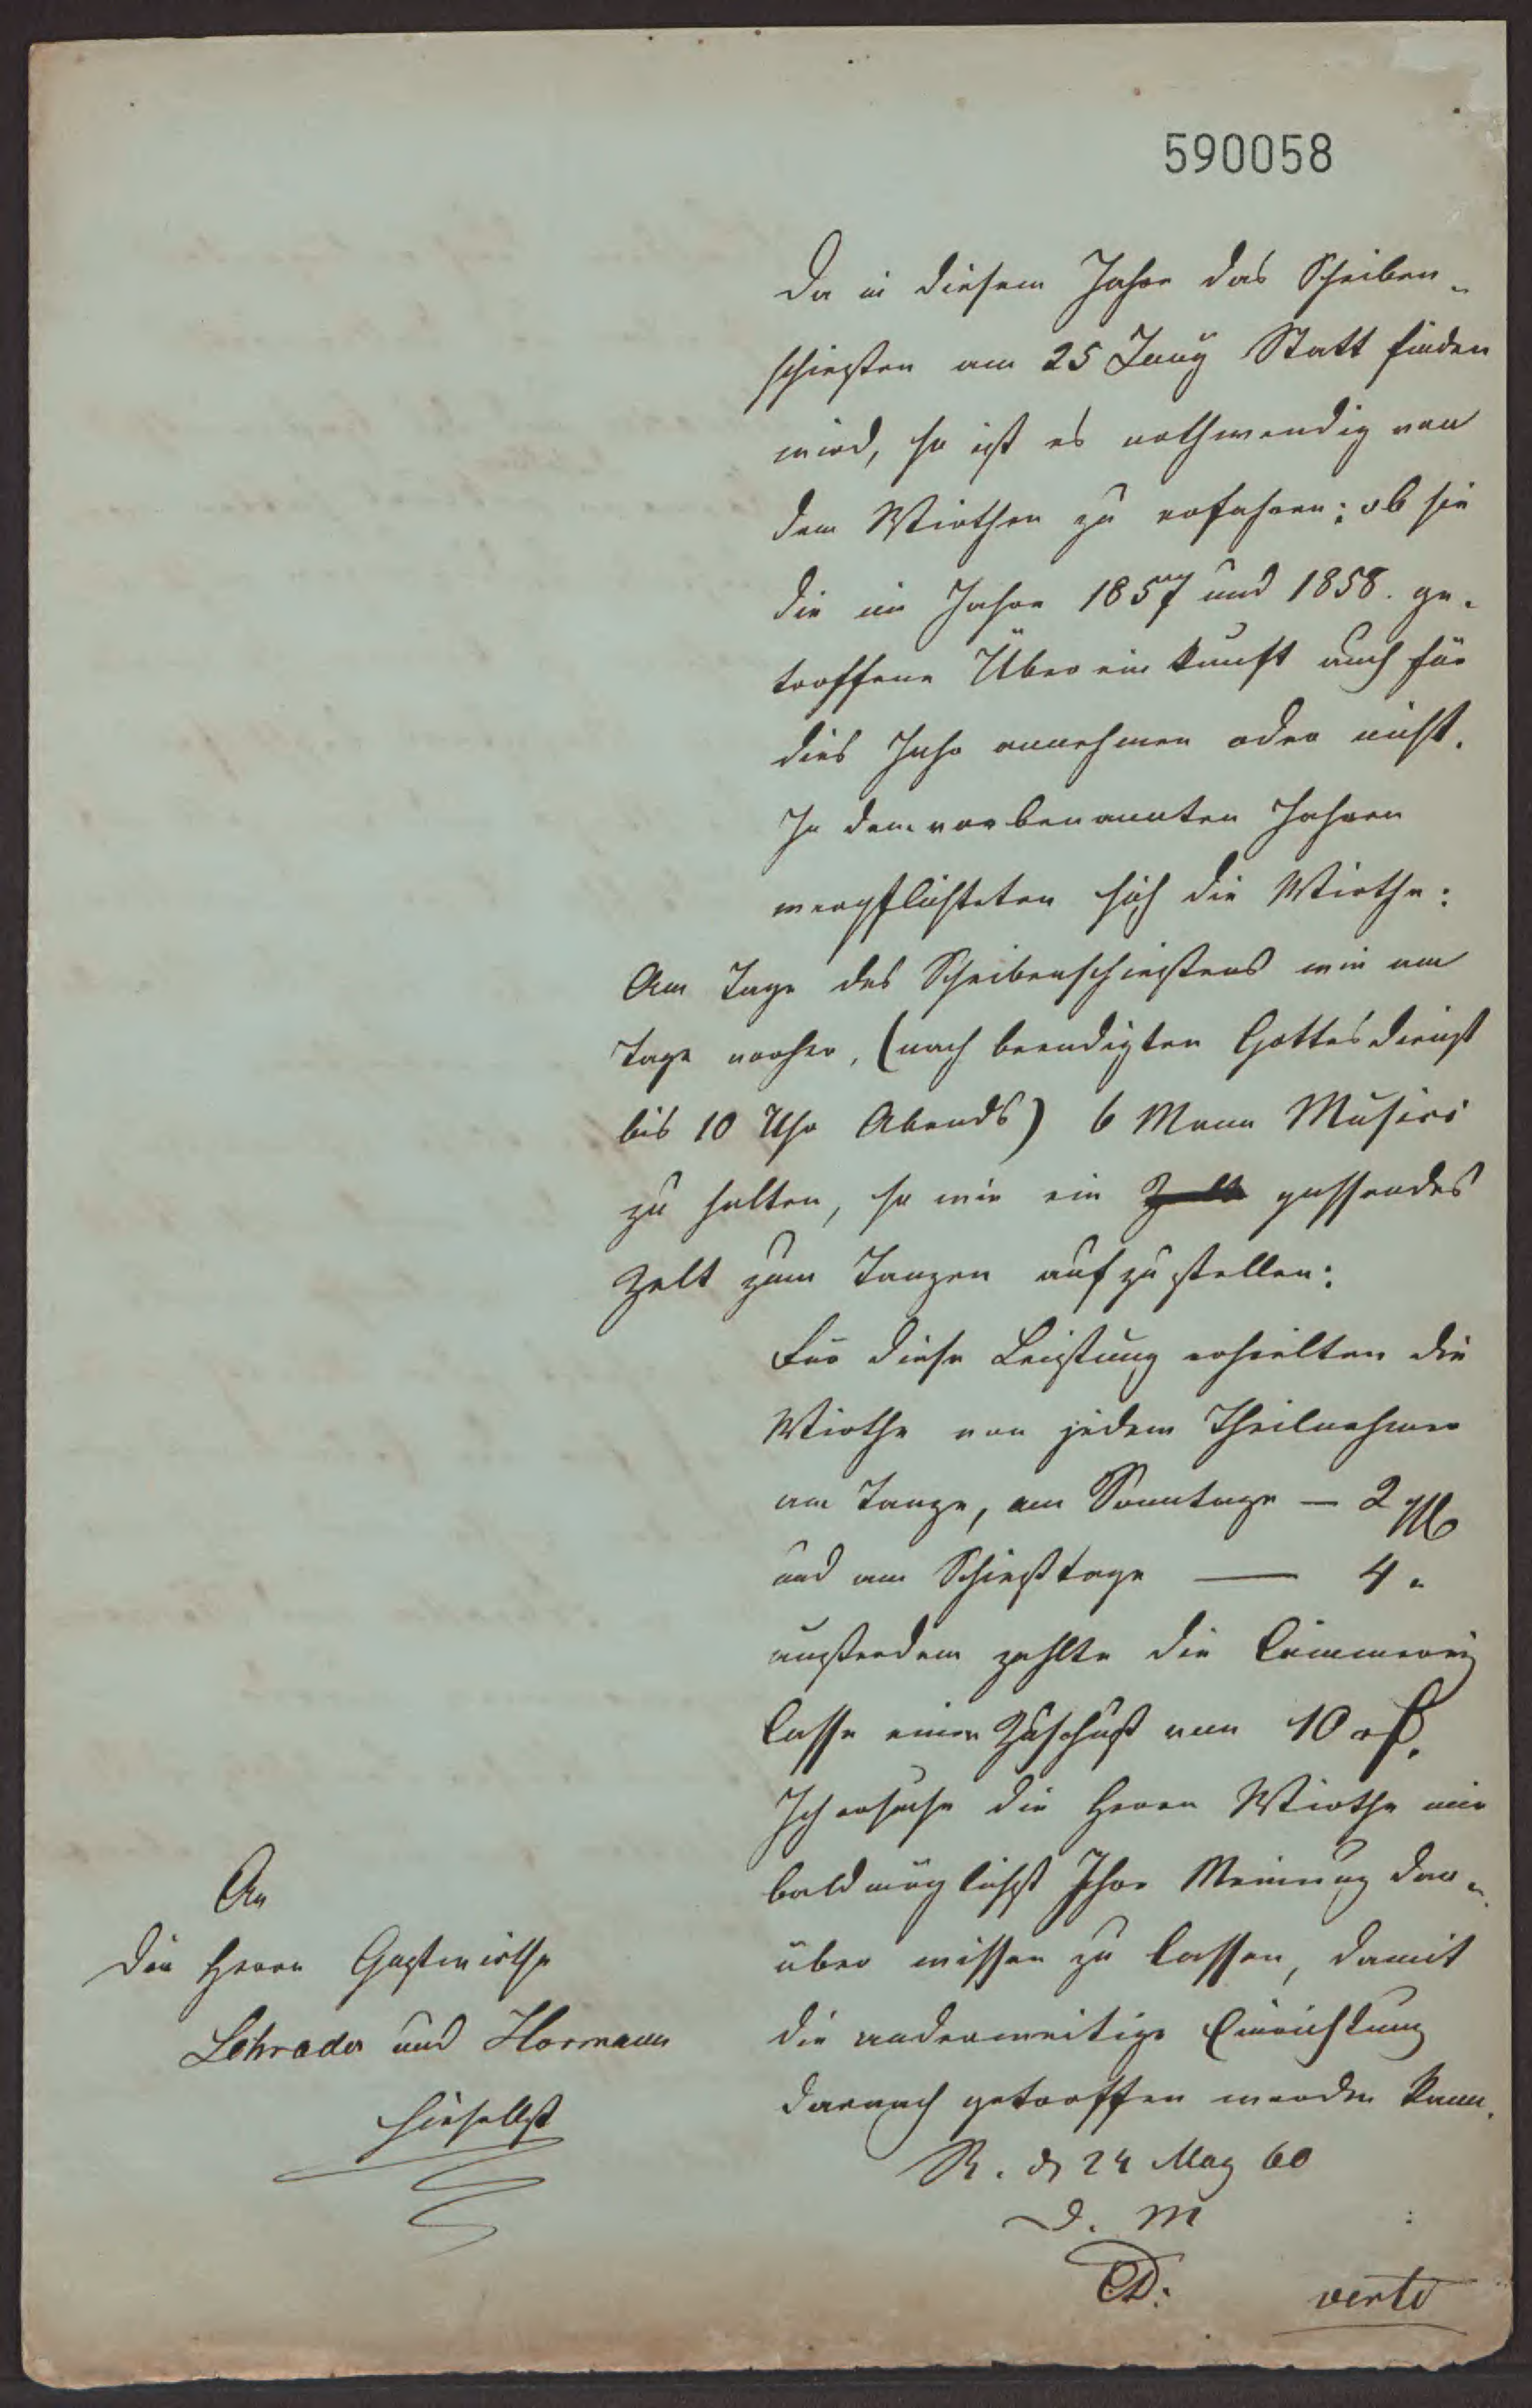 590058
Da in diesem Jahre das Scheiben-
schießen am 25 Juny Statt finden
wird, so ist es nothwendig von
den Wirthen zu erfahren: ob sie
die im Jahre 1857 und 1858. ge-
troffene Übereinkunft auch für
dies Jahr annehmen oder nicht.
In den vorbenannten Jahren
verpflichteten sich die Wirthe:
Am Tage des Scheibenschießens wie am
Tage vorher, (nach beendigten Gottesdienst
bis 10 Uhr Abends) 6 Mann Musici
zu halten, so wie ein Zelt passendes
Zelt zum Tanzen aufzustellen:
Für diese Leistung erhielten die
Wirthe von jedem Theilnehmer
am Tanze, am Sonntage — 2
und am Schießtage — 4 "
außerdem zahlte die Cämmerey
Casse einen Zuschuß von 10
Ich ersuche die Herrn Wirthe mir
baldmöglichst Ihre Meinung dar-
über wissen zu lassen, damit
die anderweitige Einrichtung
darnach getroffen werden kann.
R. d 24 May 60
D. M
verte
An
die Herrn Gastwirthe
Schrader und Hormann
hieselbst